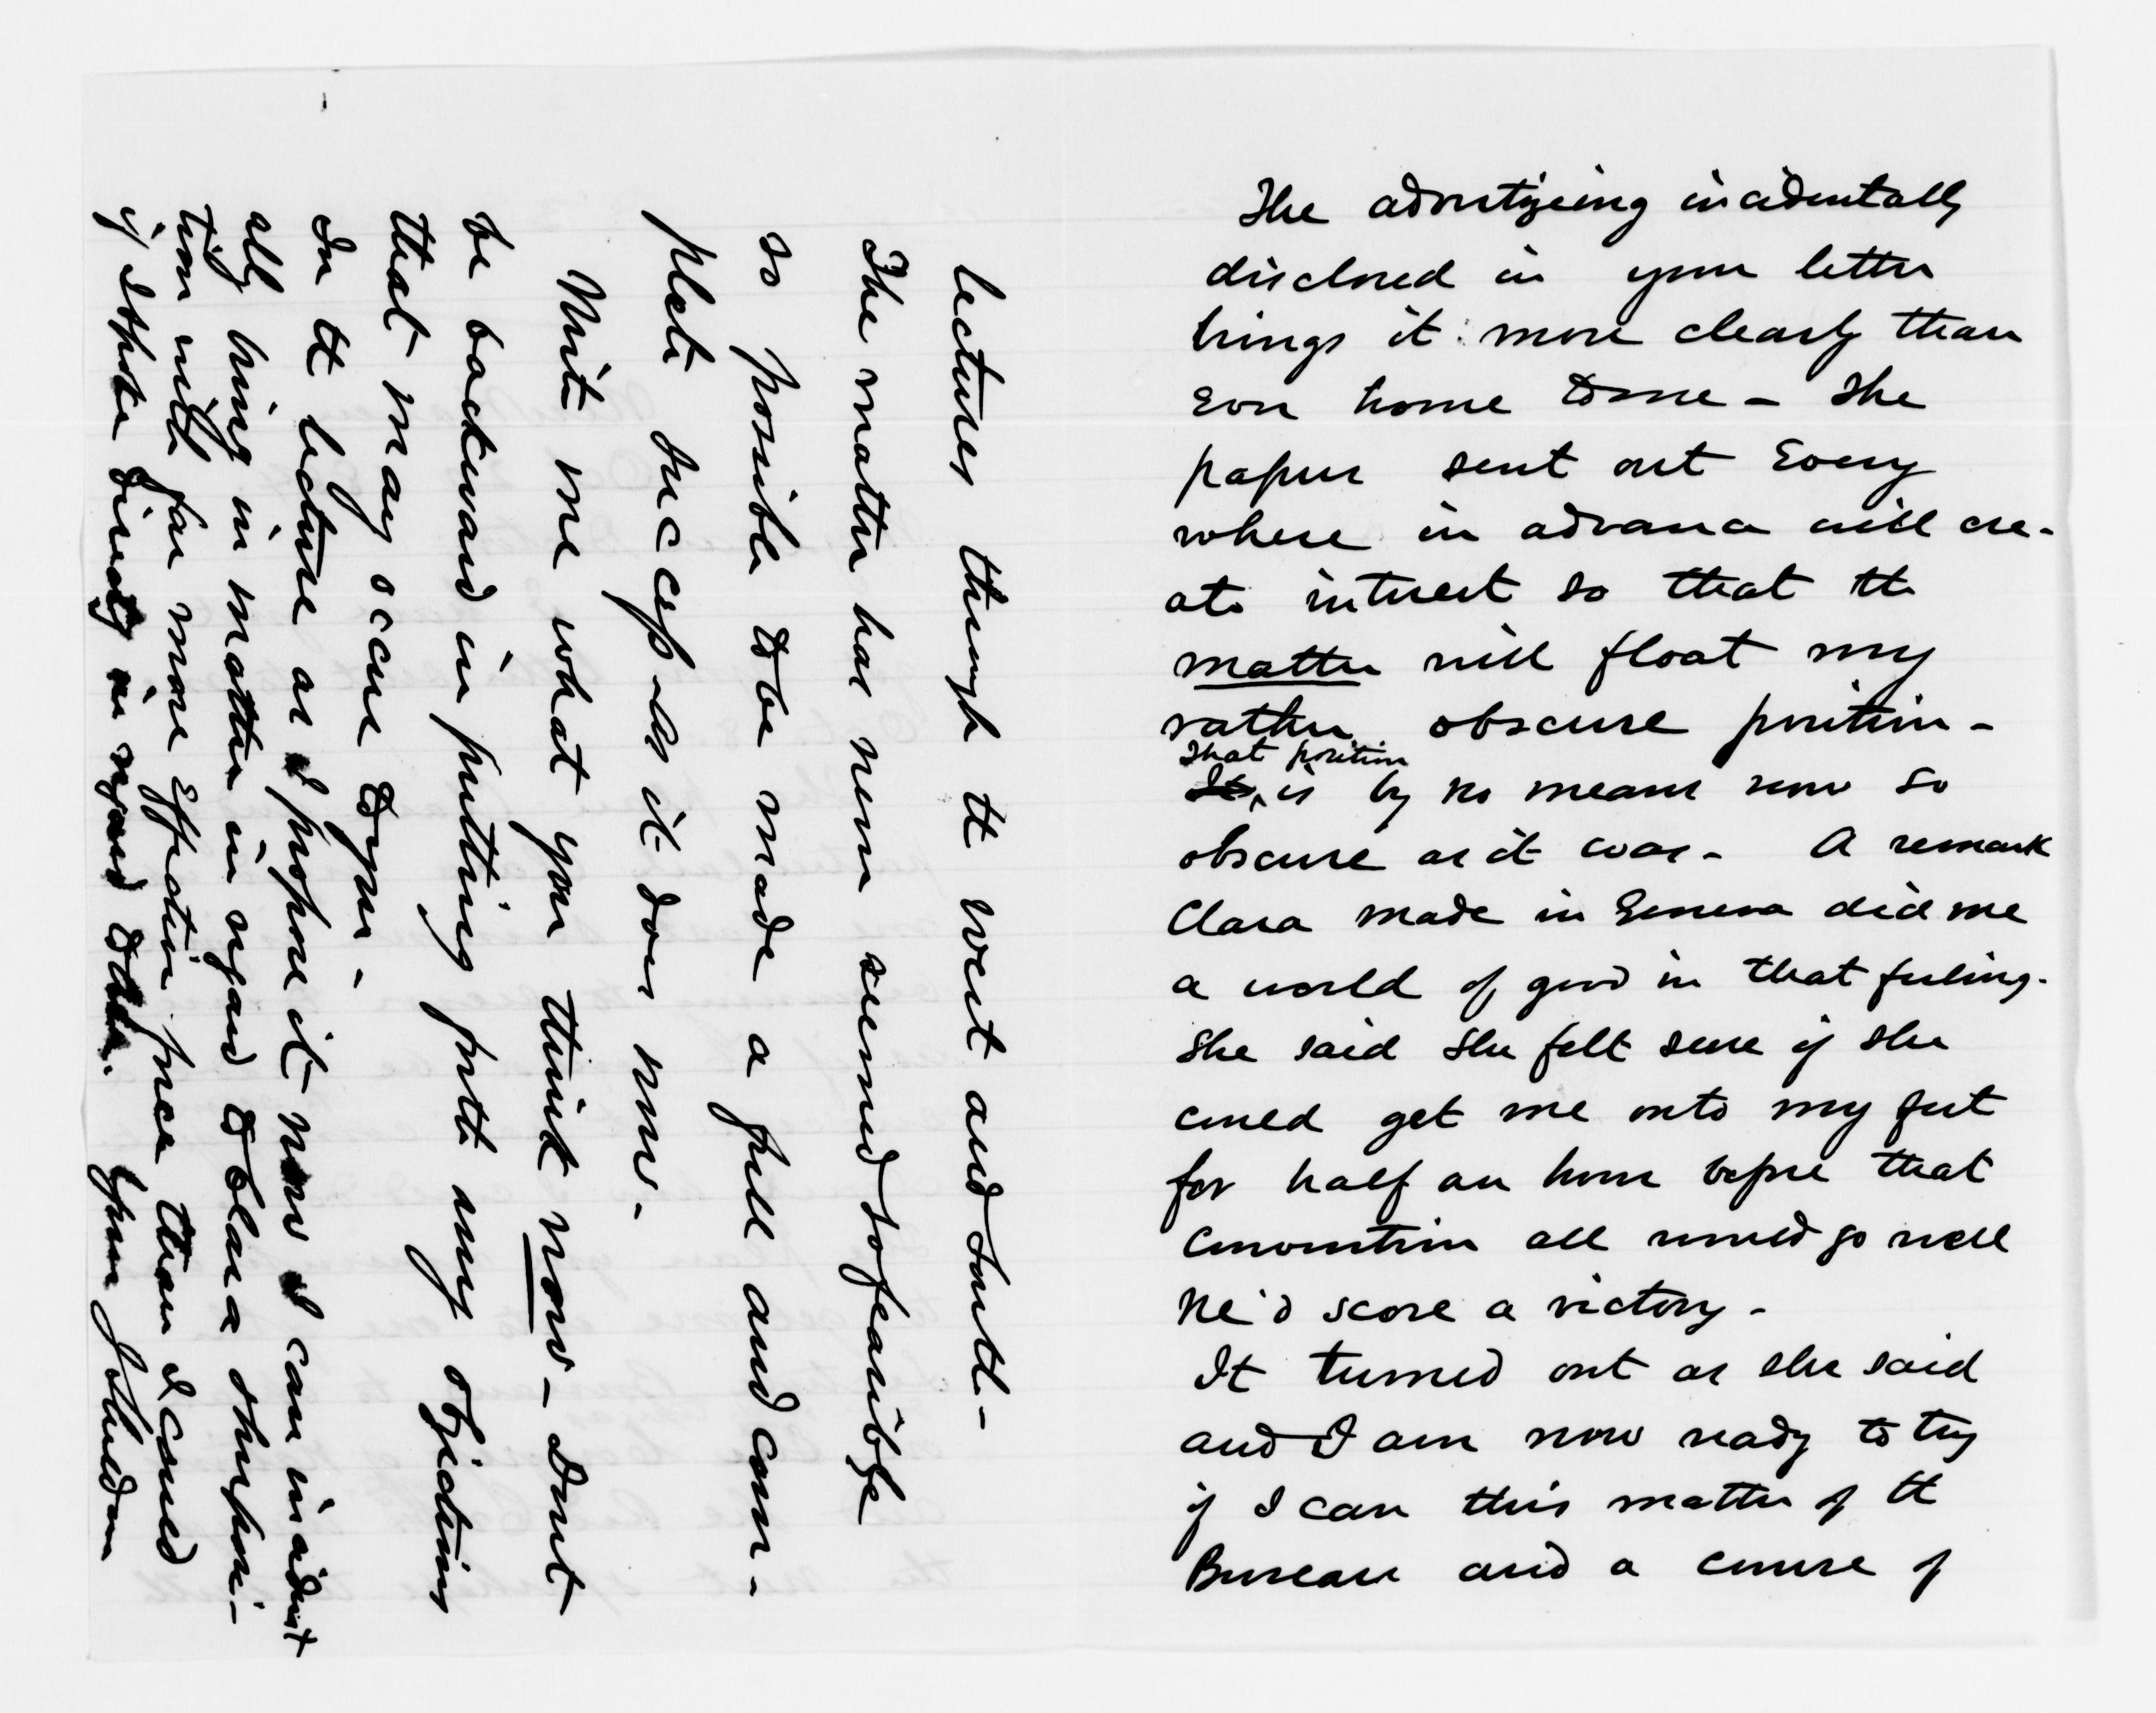 The advertizeing incidentally
disclosed in your letter
brings it more clearly than
ever home to me – The
papers sent out Every
where in advance will cre-
ate interest so that the
matter will float my
rather obscure position –
That position
It is by no means now so
obscure as it was – A remark
Clara made in Geneva did me
a world of good in that feeling.
She said she felt sure if she
could get me onto my feet
for half an hour before that
Convention all would go well
We'd score a victory –
It turned out as she said
and I am now ready to try
if I can this matter of the
Bureau and a course of
lectures through the West and South –
The matter has never seemed so feasible
so possible to be made a full and com-
plete success as it does now.
Write me what you think now – Dont
be backward in putting forth any objections
that may occur to you.
In the lecture as I propose it now I can in admit
ally bring in matter in regard to Clara's
tion with far more effective force than I could
if I spoke directly in regard to
Yours J Sheldon